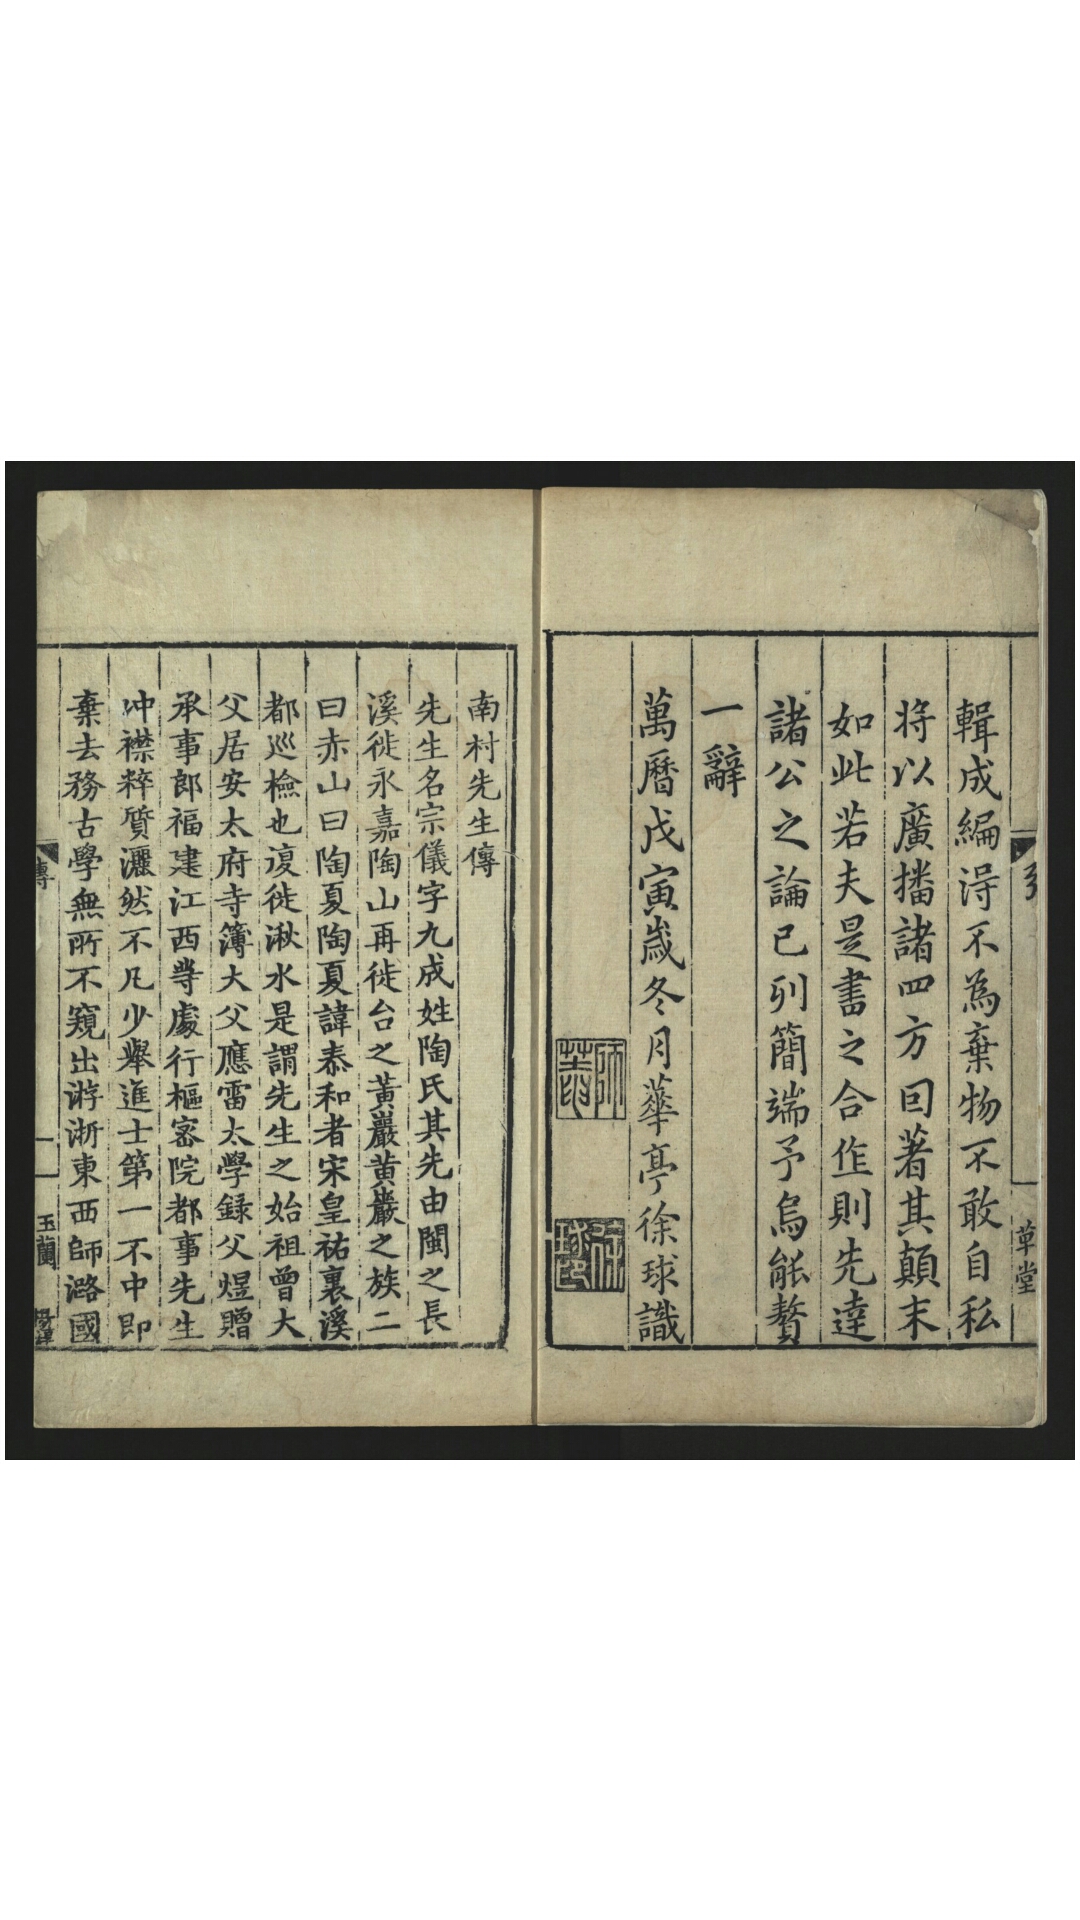 輯成編淂不為棄物不敢自私
将以廣播諸四方囙著其顛末
如此若夫是書之合作則先達
諸公之論已列簡端予烏能贅
一辭
萬曆戊寅歲冬月華亭徐球識
草堂
南村先生傳
先生名宗儀字九成姓陶氏其先由閩之長
溪徙永嘉陶山再徙台之黃巖黃巖之族二
曰赤山曰陶夏陶夏諱泰和者宋皇祐裏溪
都巡檢也復徙湫水是謂先生之始祖曾大
父居安太府寺簿大父應雷太學録父煜贈
承事郎福建江西等處行樞密院都事先生
冲襟粹質灑然不凡少舉進士第一不中即
棄去務古學無所不窺出游浙東西師潞國
傳
一
玉蘭